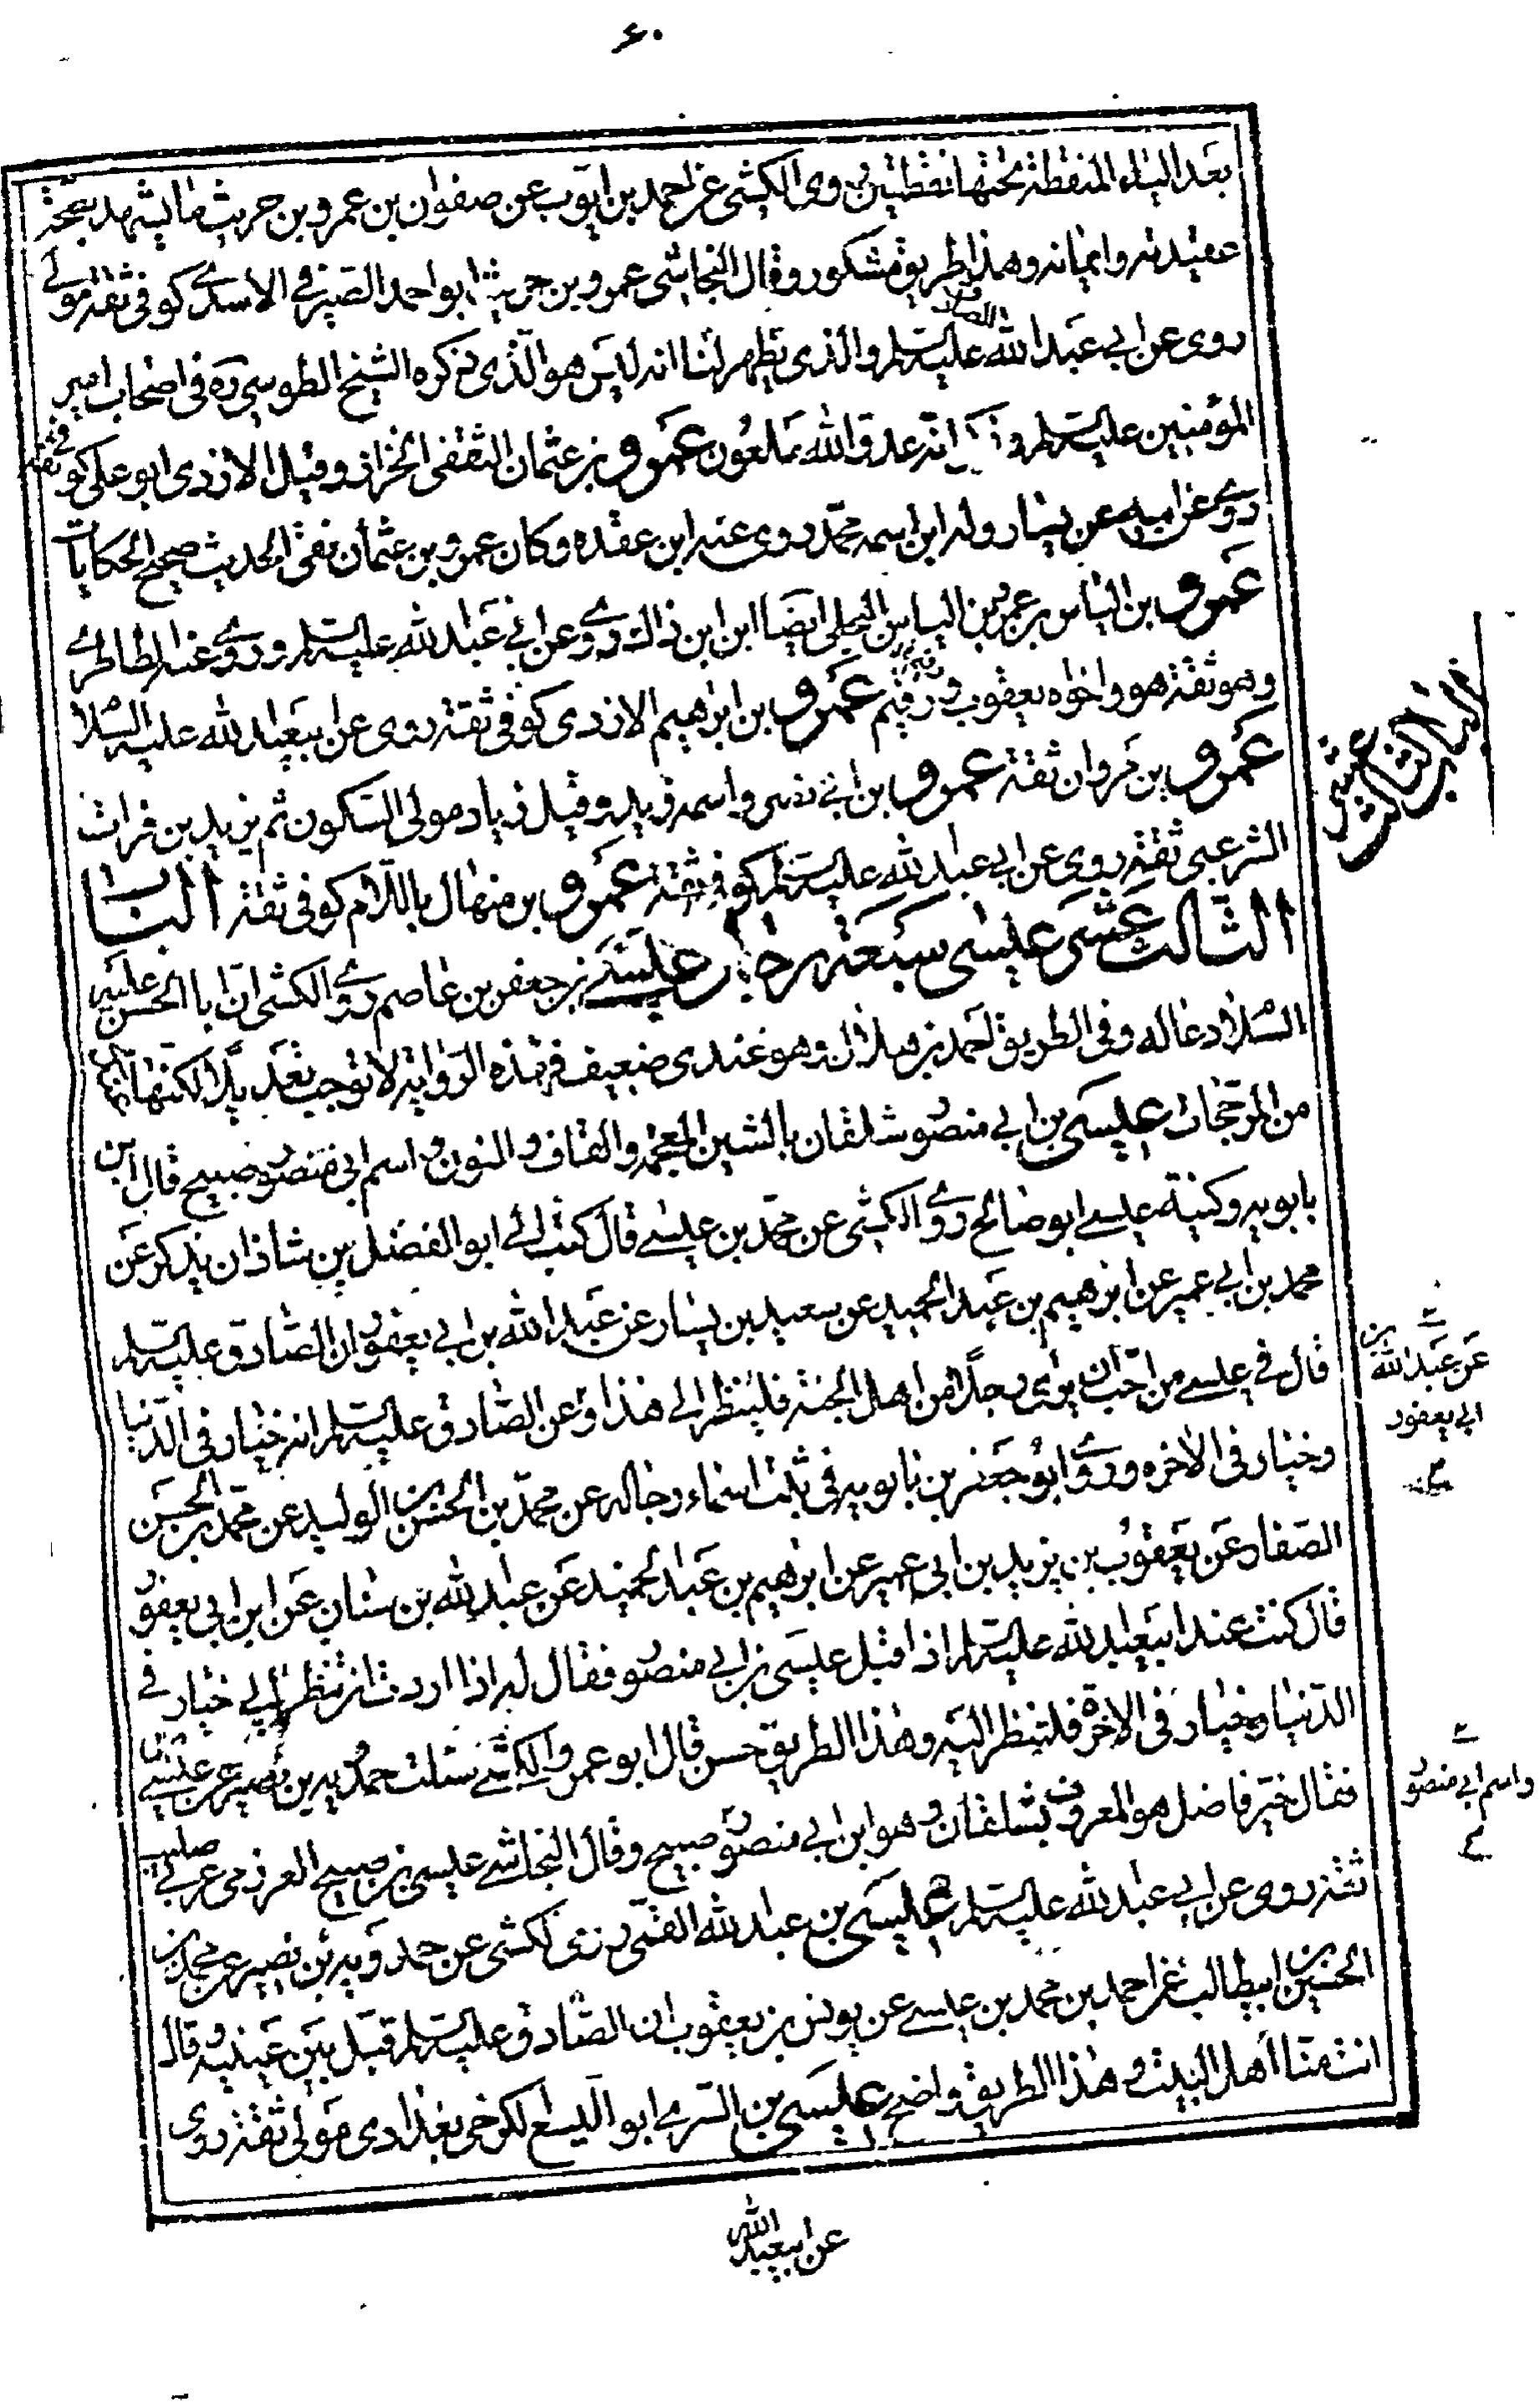 ۶۰
بعد الياء المنقطة تحتها نقطتين روى الكشى عن احمد بن ايوب عن صفوان بن عمرو بن حريث ما يشهد بصحة
عقيدته وايمانه وهذا طريق مشكور وقال النجاشى عمرو بن حريث ابو احمد الصيرفى الاسدى كوفى ثقة مولى
روى عن ابى عبد الله الصادق عليه السلم والذى يظهر لنا انه ليس هو الذى ذكره الشيخ الطوسى ره فى اصحاب امير
المؤمنين عليه السلم و انه عدو الله ملعون عمرو بن عثمان الثقفى الخزاز وقيل الازدى ابو على كوفى ثقة
روى عن ابيه عن يسار وله ابن اسمه محمد روى عنه ابن عقده وكان عمرو بن عثمان نقى الحديث صحيح الحكايات
عمرو بن الياس بن عمرو بن الياس البجلى ايضا ابن ابن ذاك روى عن ابى عبد الله عليه السلم وروى عنه الطاطرى
وهو ثقة هو واخواه يعقوب ورقيم عمرو بن ابرهيم الازدى كوفى ثقة روى عن ابيعبد الله عليه السلا
عمرو بن مروان ثقة عمرو بن ابى نصر واسمه زيد وقيل زياد مولى السكون ثم يزيد بن فرات
الشرعبى ثقة روى عن ابى عبد الله عليه السلم كوفى ثقة عمرو بن منهال باللام كوفى ثقة الباب
الثالث عشر عيسى سبعة رجال عيسى بن جعفر بن عاصم روى الكشى ان ابا الحسن عليه
السلا دعا له وفى الطريق احمد بن هلال وهو عندى ضعيف فهذه الرواية لا توجب تعديلا لكنها
من المرجحات عيسى بن ابى منصور شلقان بالشين المعجمة والقاف والنون واسم ابى منصور صبيح قال ابن
بابويه وكنية عيسى ابو صالح روى الكشى عن محمد بن عيسى قال كتب الى ابو الفضل بن شاذان يذكر عن
محمد بن ابى عمير عن ابرهيم بن عبد الحميد عن سعيد بن يسار عن عبد الله بن ابى يعفور ان الصادق عليه السلم
قال فى عيسى من احب ان يرى رجلا من اهل الجنة فلينظر الى هذا وعن الصادق عليه السلم انه خيار فى الدنيا
وخيار فى الاخره وروى ابو جعفر بن بابويه فى ثبت اسماء رجاله عن محمد بن الحسن بن الوليد عن محمد بن الحسن
الصفار عن يعقوب بن يزيد بن ابى عمير عن ابرهيم بن عبد الحميد عن عبد الله بن سنان عن ابن ابى يعفور
قال كنت عند ابيعبد الله عليه السلم اذا اقبل عيسى بن ابى منصور فقال له اذا اردت ان تنظر الى خيار فى
الدنيا وخيار فى الاخرة فلتنظر اليه وهذا الطريق حسن قال ابو عمرو الكشى سئلت حمدويه بن نصير عن عيسى
فقال خير فاضل هو المعروف بشلقان وهو ابن ابى منصور صبيح وقال النجاشى عيسى بن صبيح العرزمى عربى صليب
ثقة روى عن ابى عبد الله عليه السلم عيسى بن عبد الله القمى روى الكشى عن حمدويه بن نصير عن محمد بن
الحسين بن ابيطالب عن احمد بن محمد بن عيسى عن يونس بن يعقوب ان الصادق عليه السلم قبل بين عينيه وقال
انت منا اهل البيت وهذا الطريق واضح عيسى بن السرى ابو اليسع الكرخى بغدادى مولى ثقة روى
عن ابيعبد الله
الباب الثالث عشر
عن عبد الله بن
ابى يعفور
واسم ابى منصور